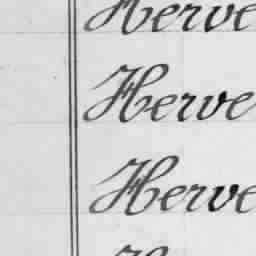 Herve
Herve
Herve